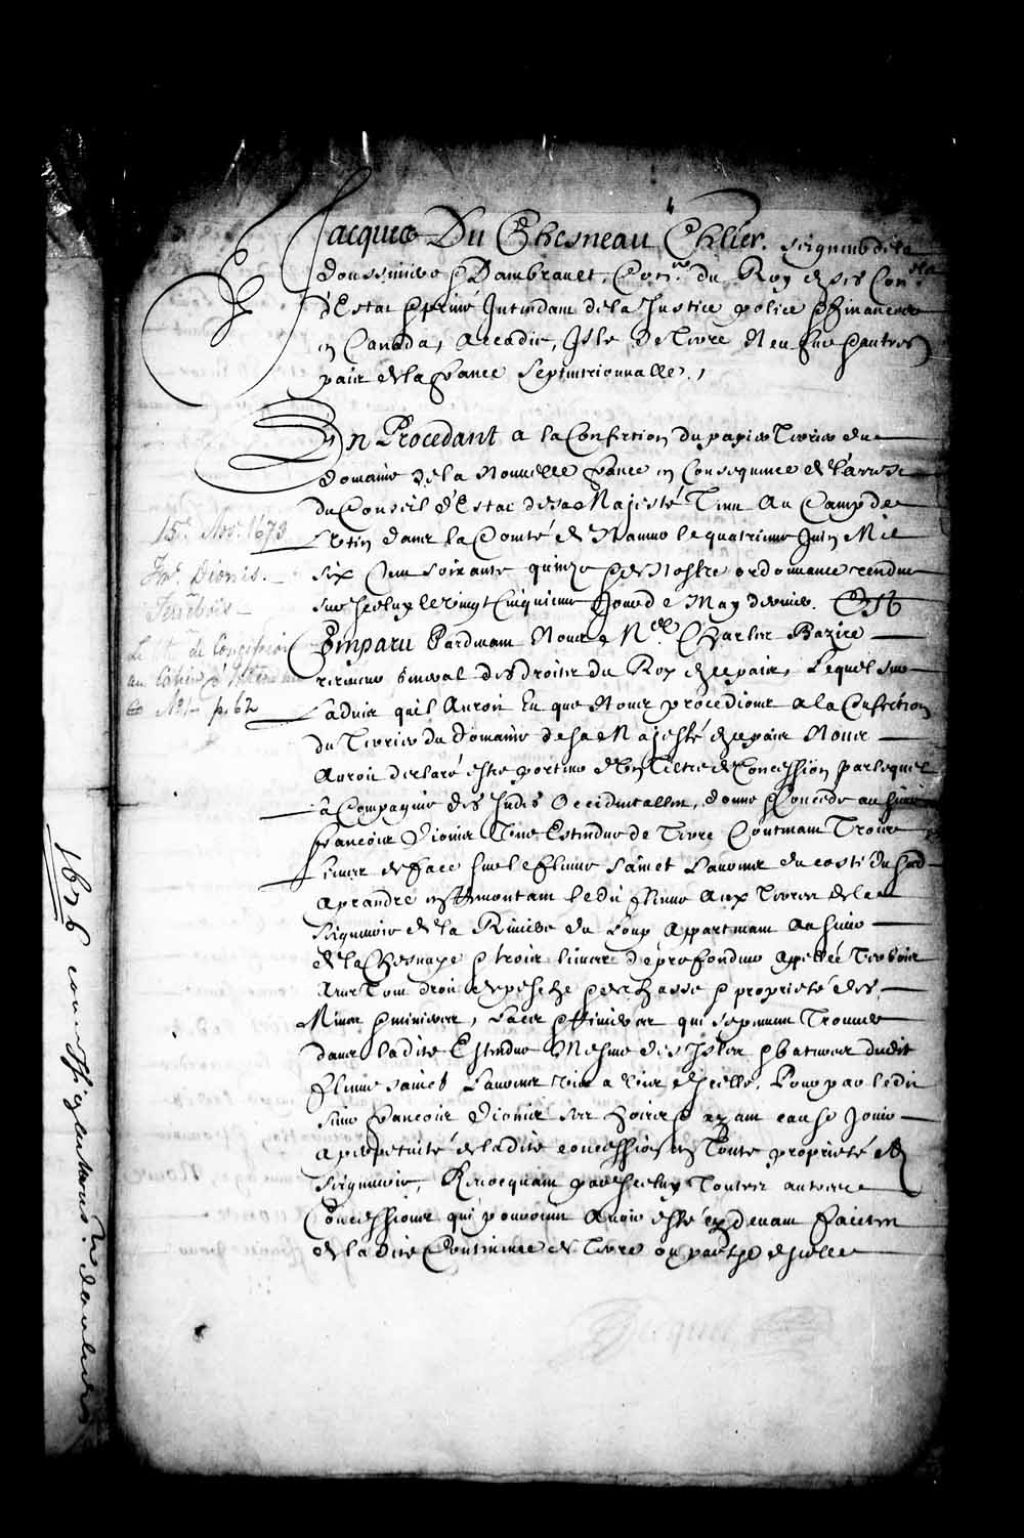 Jacques Du Chesneau Chlier. Seigneur de la
Doussiniere & Dambrault, Conr. du Roy en ses Conls
d'Estat & premr Intendant de la Justice police & finances
en Canada, Accadie, Isle de Terre Neufve & autres
païs de la france Septentrionnalle.,
En Procedant a la Confection du papier Terrier du
domaine de la Nouvelle france en Consequence de l'arrest
du Conseil d'Estat de sa Majesté Tenu Au Camp de
Lotin dans la Comté de Namur le quatrieme Juin Mil
six Cens soixante quinze & de Nostre ordonnance rendue
sur Iceluy le vingt Cinquieme Jour de May dernier. Est
Comparu Pardevant Nous Me Charles Bazire
receveur general des droits du Roy en ce païs, Lequel sur
L'advis qu'il Auroit Eu que Nous procedions a la Confection
du Terrier du domaine de sa Majesté en ce païs Nous
Auroit declaré estre porteur d'Un Tiltre de Concession par lequel
La Compagnie des Indes Occidentalles, donne & Concede au sieur
francois Dionis Une Estendue de Terre Contenant Trois
Lieues de face sur le fleuve Sainct Laurens du costé du Sud
a prendre en Montant le dit fleuve Aux Terres de la
Seigneurie de la Riviere du Loup Appartenant Au sieur
de la Chesnaye & trois lieues de profondeur Appellée Verbois
Avec Tout droit de pesche & de chasse & proprieté des
Mines & minieres, Lacs & Rivieres qui se peuvent Trouver
dans ladite Estendue Mesme des Isles & batures dudit
fleuve Sainct Laurens vis a vis d'Icelle, Pour par le dit
sieur francois Dionis ses hoirs & ayant cause Jouir
a perpetuité de ladite concession en Toute proprieté &
Seigneurie, Revocquant par Icelluy Toutes autres
Concessions qui pouvoient Avoir esté cy devant faictes
de la dite Contenue de Terre ou partye d'Icelle
15e. Nov. 1673
Frs. Dionis.
Verbois
Le tit. de Concession
au Cahier d'Intend.
No 1 p. 62
1676